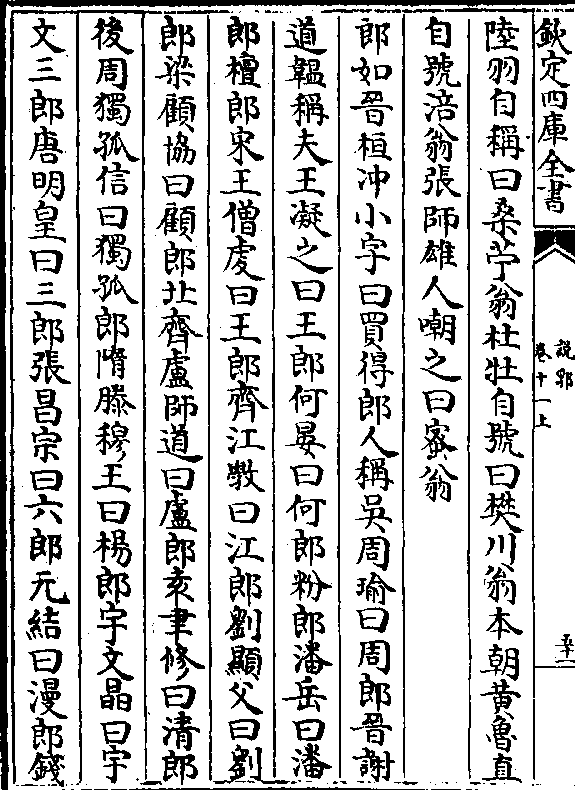 欽定四庫全書
說郛
卷十一上
陸羽自稱曰桑苧翁杜牡自號曰樊川翁本朝黄魯直
自號涪翁張師雄人嘲之曰蜜翁
郎如晉桓冲小字曰買得郎人稱吳周瑜曰周郎晉謝
道韞稱夫王凝之曰王郎何晏曰何郎粉郎潘岳曰潘
郎檀郎宋王僧虔曰王郎齊江斆曰江郎劉顯父曰劉
郎梁顧協曰顧郎北齊盧師道曰盧郎袁聿修曰清郎
後周獨孤信曰獨孤郎隋滕穆王曰楊郎宇文晶曰宇
文三郎唐明皇曰三郎張昌宗曰六郎元結曰漫郎錢